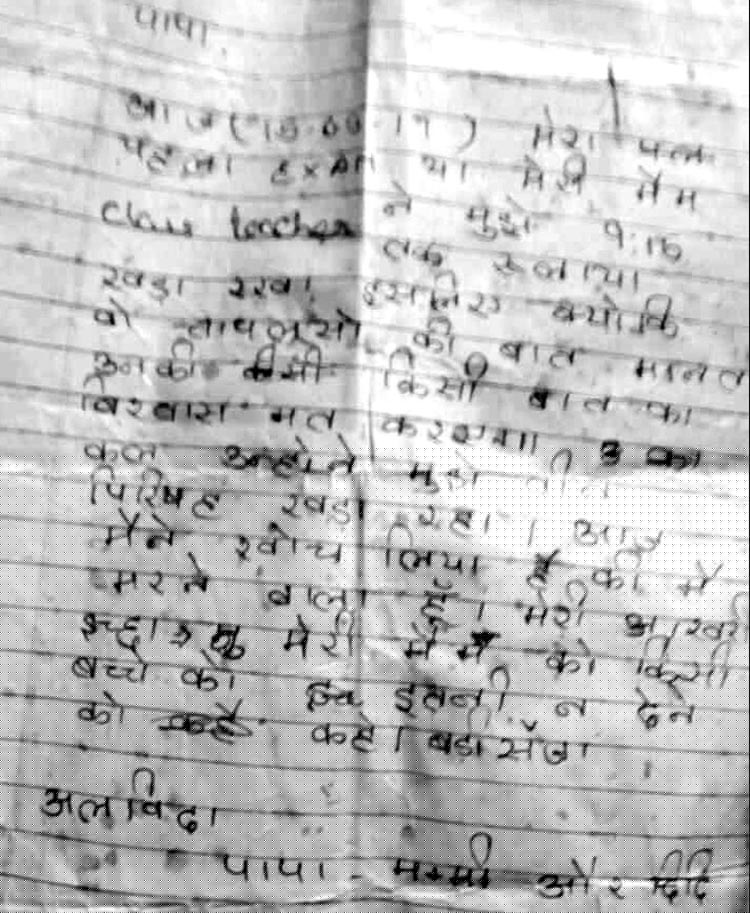 पापा
आज (15.09.17) मेरा
पहला EXAM था मेरी मैम
class teacher ने मुझे 9:15
तक रुलाया
खड़ा रखा। इसलिए क्योकि
वो चापलूसो की बात मानत
उनकी किसी बात का
विश्वास मत
कल उन्होने मुझे तीन
पिरियड खड़ा रखा। आज
मैने सोच लिया है की मैं
मरने वाला हूँ। मेरी आखरी
इच्छा मेरी मैम को किसी
बच्चे को इतनी न देने
को कहे। बड़ी सजा
अलविदा
पापा - मम्मी और दिदि